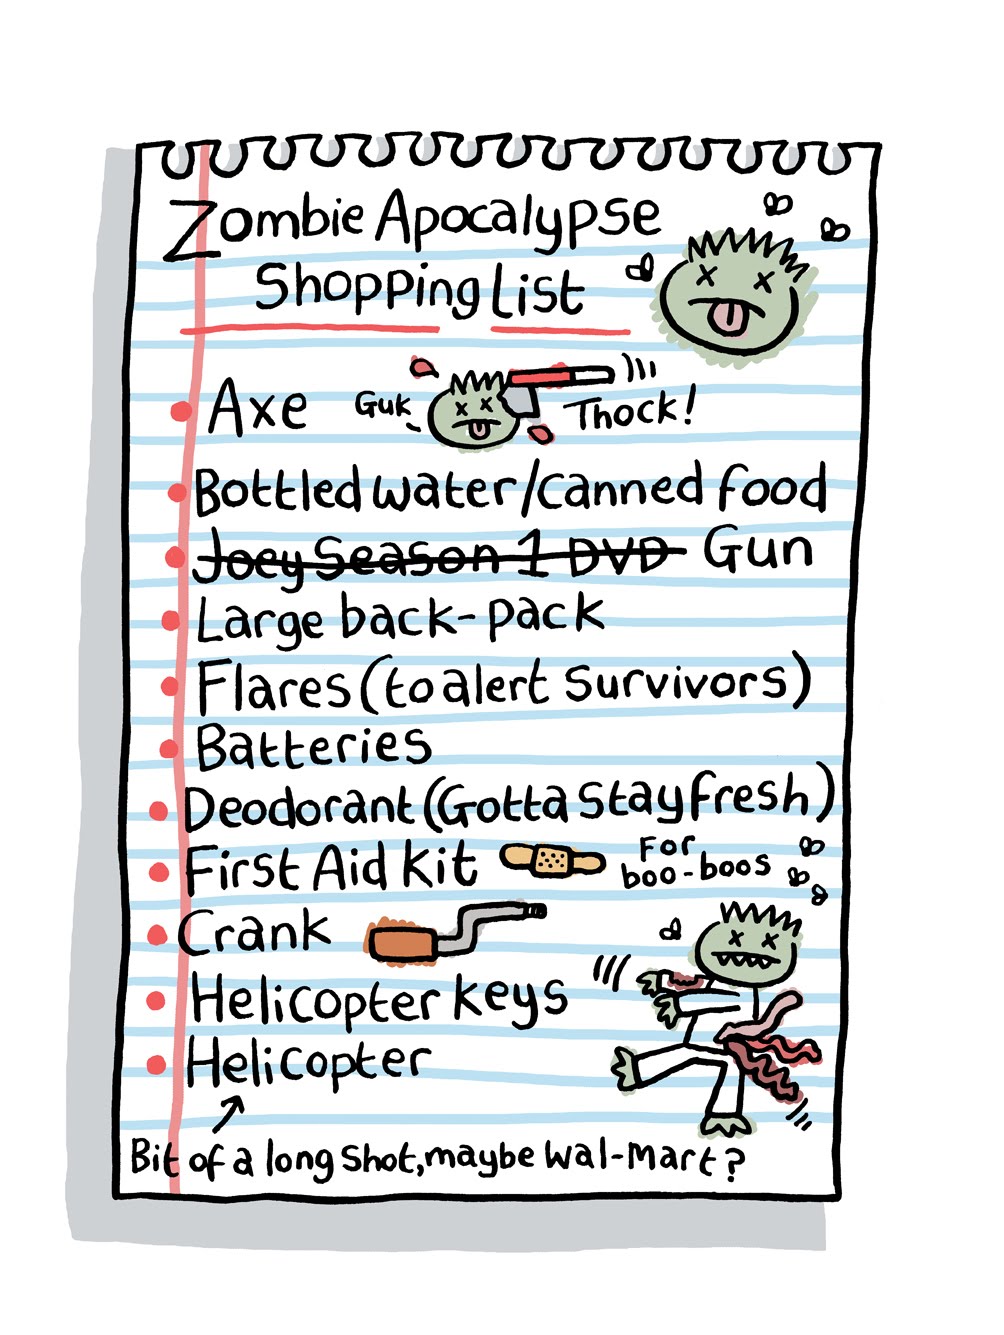 Zombie Apocalypse
Shopping List
Axe Guk Thock!
Bottled water/canned food
Joey Season 1 DVD Gun
Large back-pack
Flares (to alert survivors)
Batteries
Deodorant (Gotta stay fresh)
First Aid Kit For boo-boos
Crank
Helicopter keys
Helicopter
Bit of a long shot, maybe Wal-Mart?